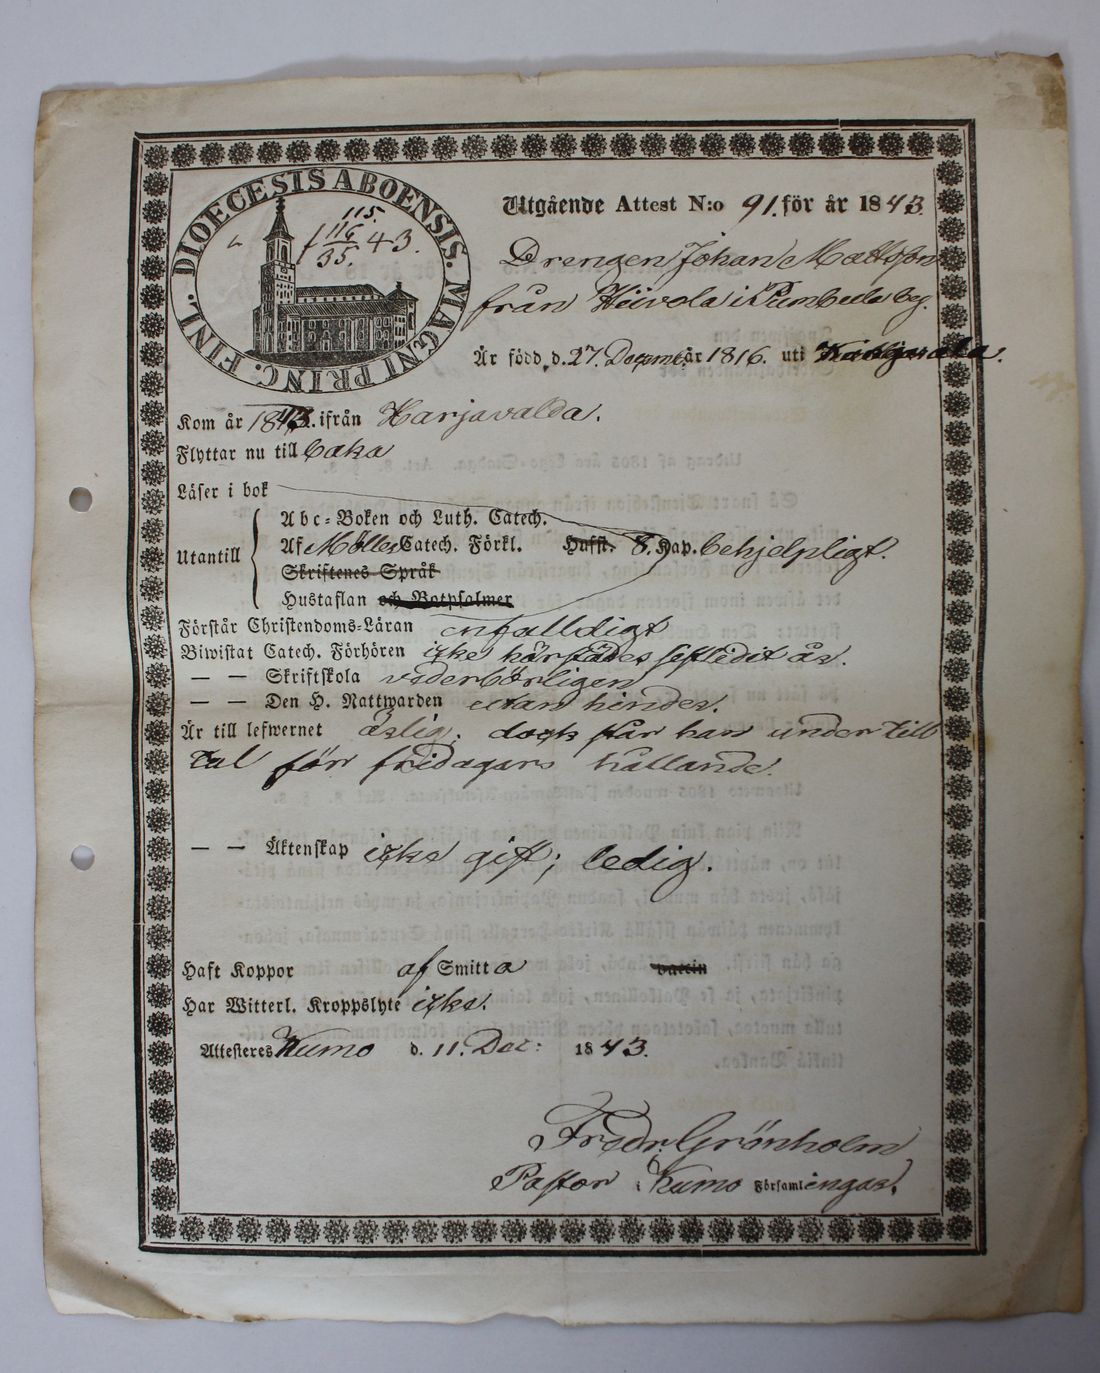 DIOECESIS ABOENSIS. MAGNI PRINC. FINL.
115.
116
35.
43.
Utgående Attest N:o 91. för år 1843.
Drengen Johan Mattsson
från i
Är född, d. 27. Decemb. år 1816. uti
Kom år 1843. ifrån Harjavalda.
Flyttar nu till
Läser i bok
Abc-Boken och Luth. Catech.
Utantill
Af Möllers Catech. Förkl. Hufst. 8. Kap. behjelpligt.
Skriftenes Språk
Hustaflan och Botpsalmer
Förstår Christendoms-Läran enfalldigt
Biwistat Catech. Förhören icke härstädes sistledit år.
— — Skriftskola vederbörligen
— — Den H. Nattwarden utan hinder.
Är till lefwernet ärlig; dock står han under till
tal för fridagars hållande.
— — Äktenskap icke gift; ledig.
Haft Koppor af Smitta vaccin
Har Witterl. Kroppslyte icke.
Attesteres Kumo d. 11. Dec: 1843.
Fredr. Grönholm
Pastor i Kumo Församlingar.